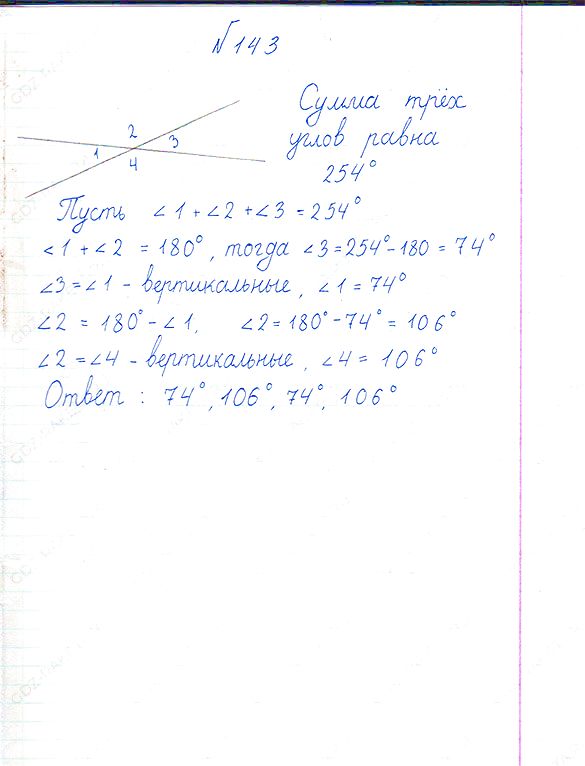 №143
2
1 3
4
Сумма трёх
углов равна
254°
Пусть ∠1+∠2+∠3=254°
∠1+∠2 =180°, тогда ∠3=254°-180=74°
∠3=∠1 - вертикальные, ∠1=74°
∠2 = 180°-∠1, ∠2=180°-74°=106°
∠2=∠4 - вертикальные, ∠4= 106°
Ответ : 74°, 106°, 74°, 106°